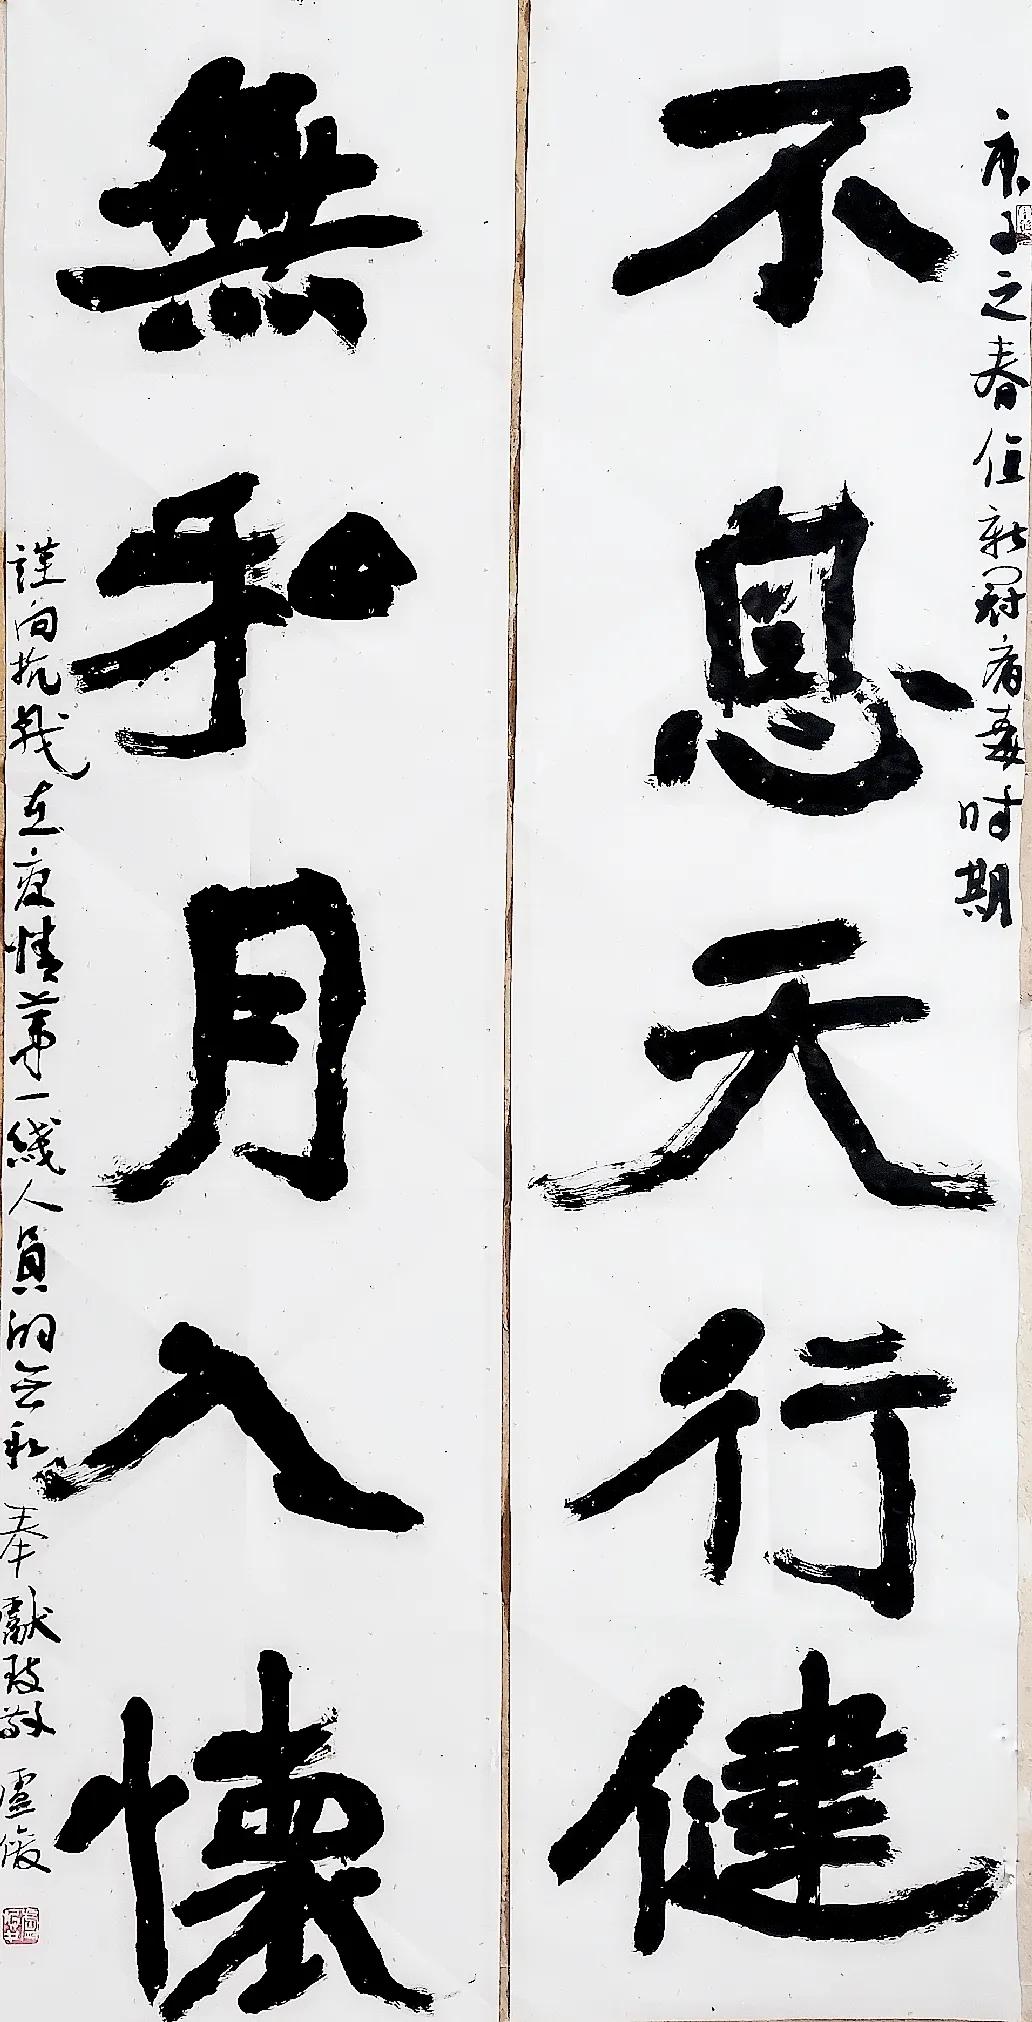 庚子之春值新冠病毒时期
不息天行健
無私月入懷
謹向抗戰在疫情第一綫人員的無私奉獻致敬 盧俊